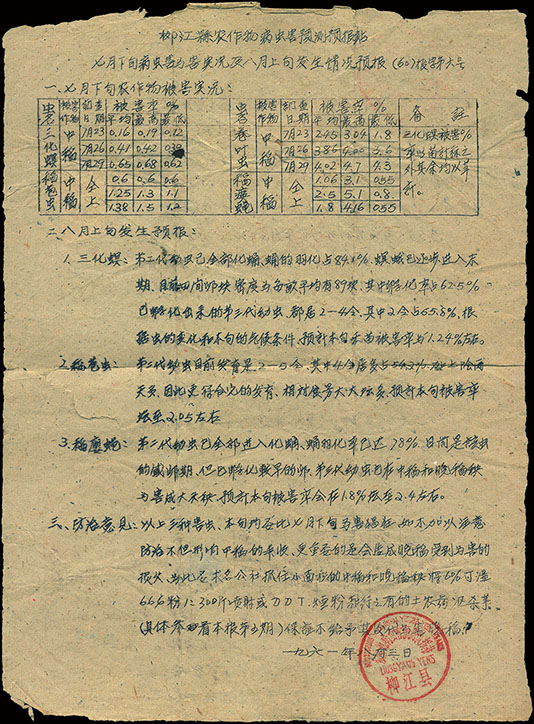 柳江縣农作物病虫害预测预报站
七月下旬病虫害为害实况及八月上旬发生情况预报(60)报字第六号
一、七月下旬农作物被害实况:
虫名 被害作物 调查日期 被害率 % 平均 最高 最低 虫名 被害作物 调查日期 被害率 % 平均 最高 最低 备註
三化螟 中稻 7月23 0.16 0.19 0.12 卷叶虫 中稻 7月23 2.45 3.04 1.8 三化螟被害%
7月26 0.41 0.42 7月26 3.86 3.6 率以苗計算之
7月29 0.65 0.68 0.62 7月29 4.02 4.7 4.3 外其余均以苹
稻苞虫 中稻 仝上 0.6 0.6 0.6 稻瘿蝇 中稻 仝上 1.06 3.1 0.55 計。
1.25 1.3 1.1 2.5 5.1 0.8
1.38 1.5 1.2 1.8 4.16 0.55
二、八月上旬发生预报:
1. 三化螟: 第二代幼虫已全部化蛹、蛹的羽化占84.1%、螟蛾已逐步进入末
期、目前田间卵块密度为每亩平均有89块、其中孵化率占62.5%
已孵化出来的第三代幼虫、都是2—4令、其中2令占65.8%、根
据虫的变化和本旬的气候条件、预計本旬禾苗被害率占1.24%左右。
2. 稻苞虫: 第三代幼虫目前发育是2—5令、其中4令居多占54.2%、加上阴雨
天多、因此更符合它的发育、相对使为大大增多、预計本旬被害率
增至2.05左右
3. 稻瘿蝇: 第二代幼虫已全部进入化蛹、蛹羽化率已达78%、目前是该虫
的盛卵期、但已孵化較早的卵、第三代幼虫已在中稻和晚稻秧
为害成大禾秧、预計本旬被害率会在1.8%增至2.4左右。
三、防治意见:以上三种害虫、本旬内在比七月下旬为害猖狂、如不加以注意
防治不但影响中稻的丰收、更重要的是会造成晚稻受到为害的
损失、为此各公社抓住水面積的中稻和晚稻秧、将6%可湿
666粉1:300斤喷射或刀刀丁、烟粉和行之有的土农药扑杀等
(具体参看本报第五期)保証不给
一九六一年八月三日
柳江县